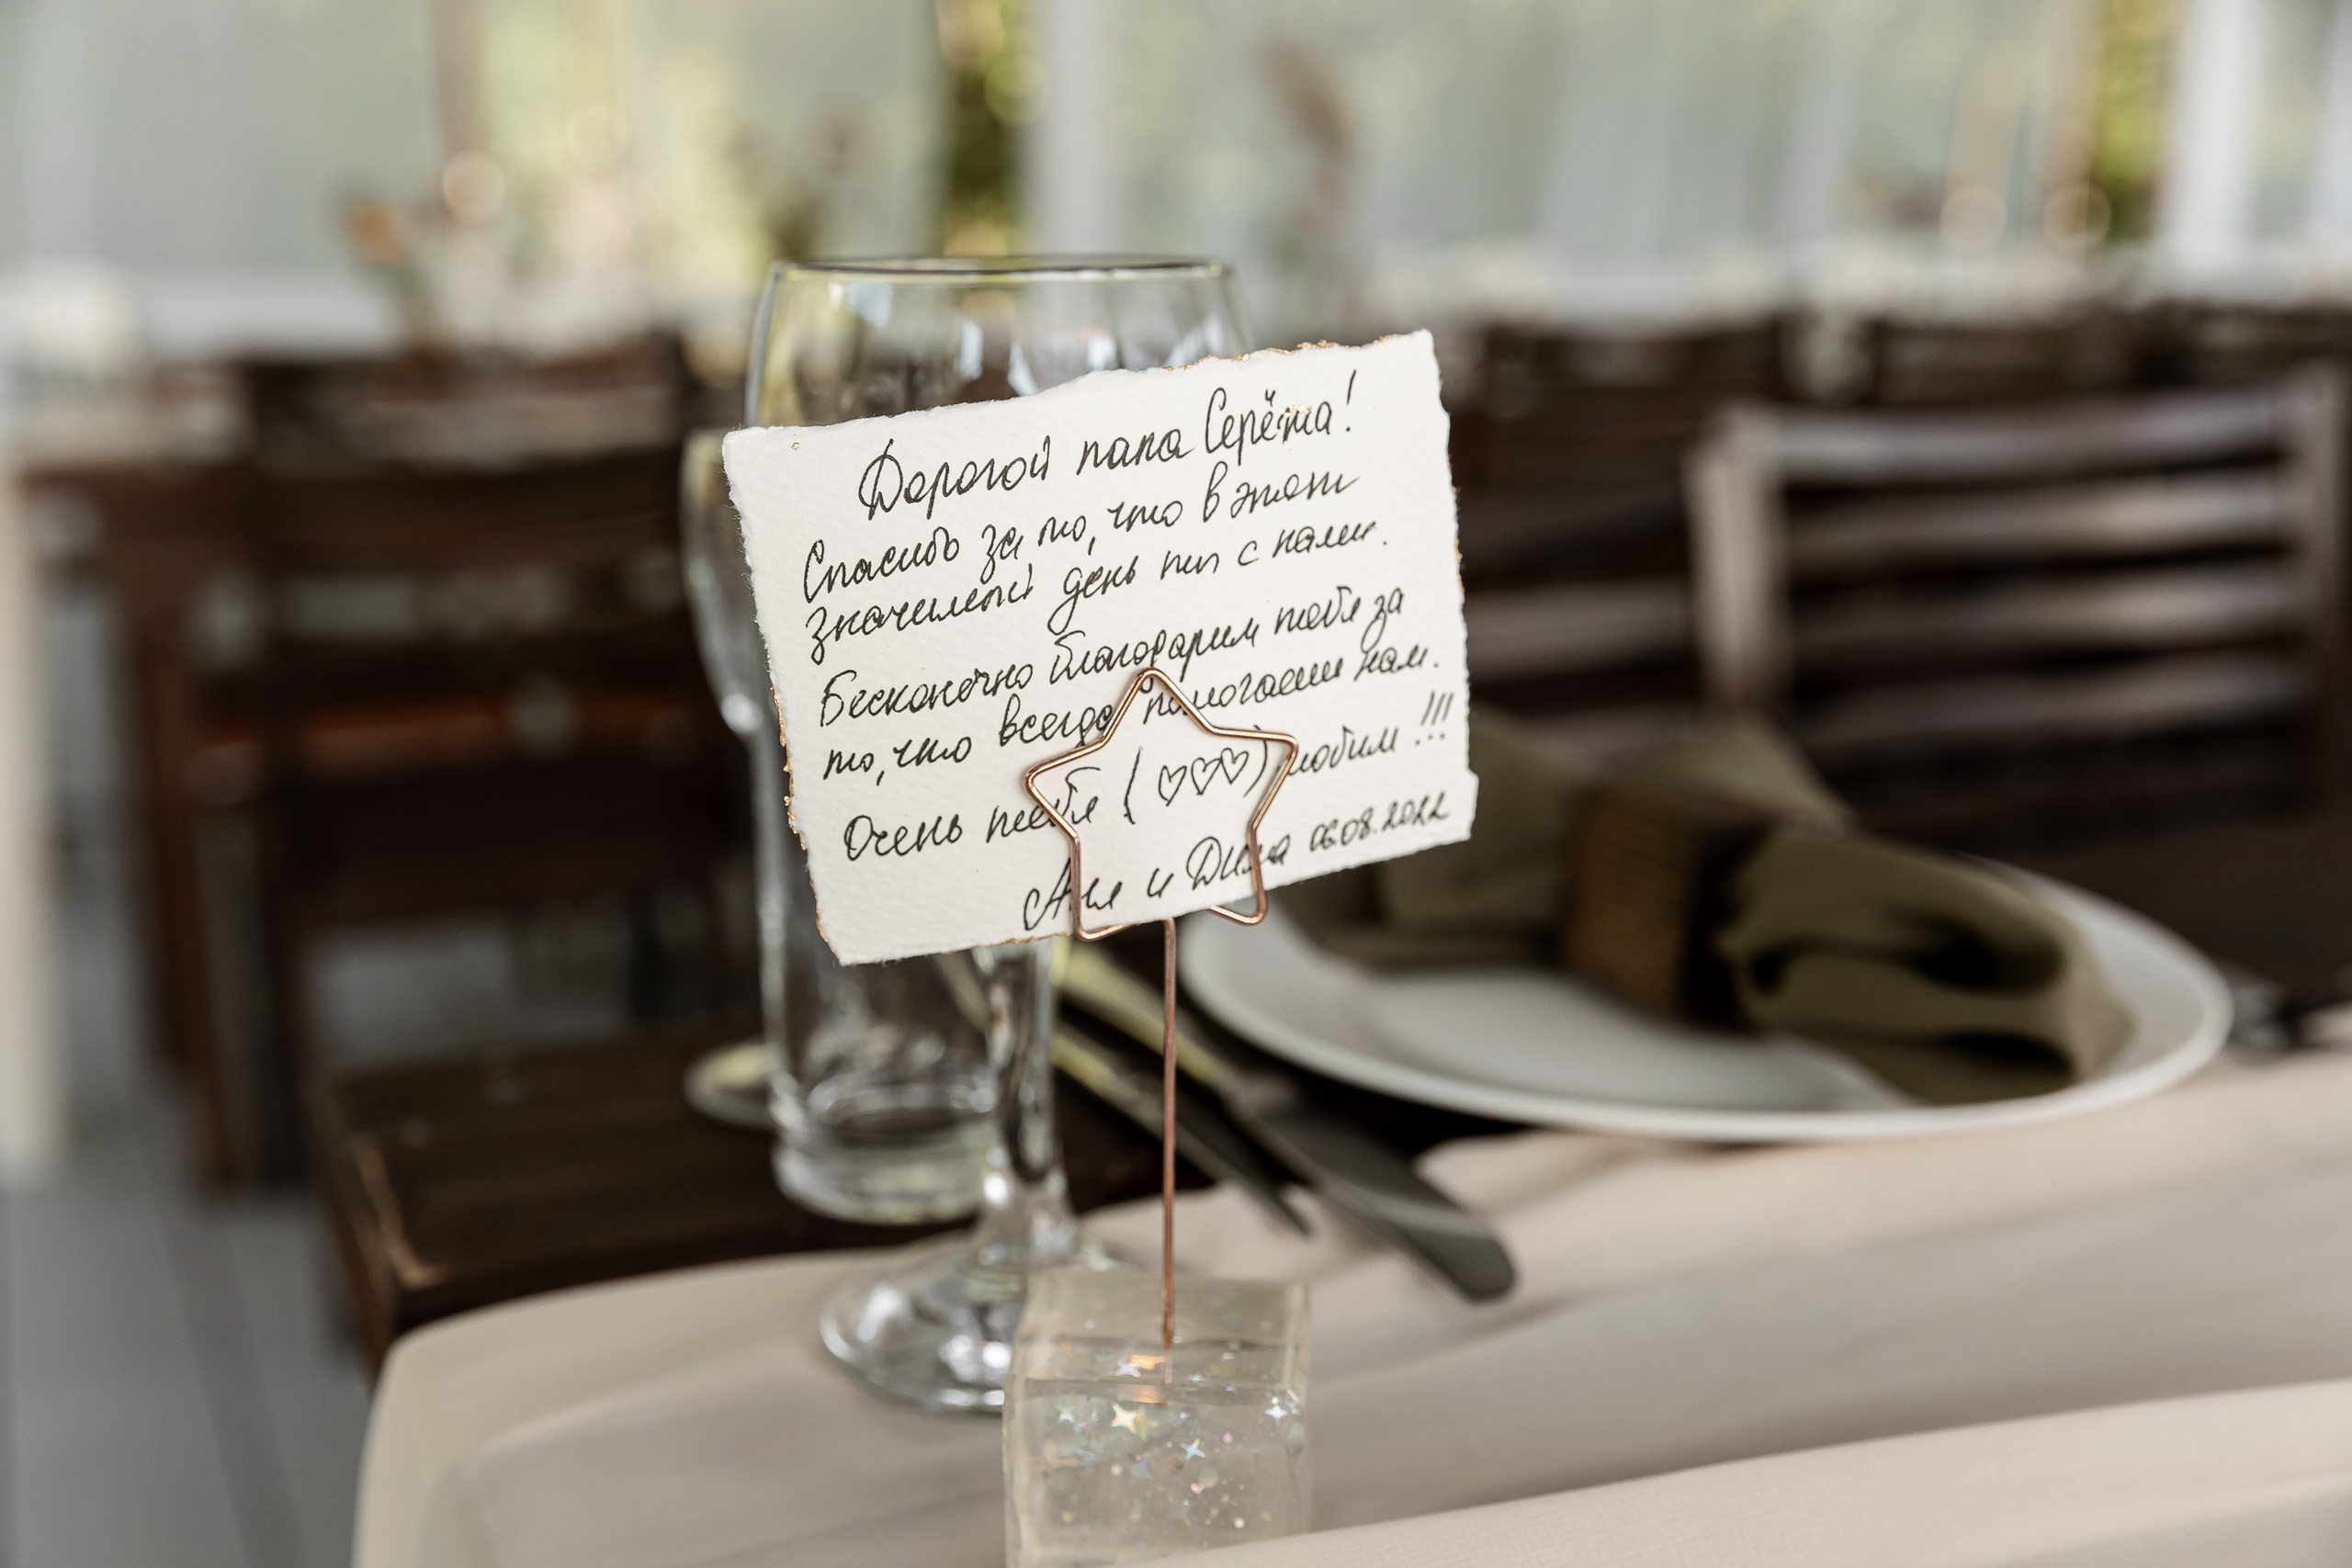 Дорогой папа Серёжа!
Спасибо за то, что в этот
значимый день ты с нами.
Бесконечно благодарим тебя за
то, что всегда помогаешь нам.
Очень тебя (♡♡♡) любим !!!
Аня и Дима 06.08.2022